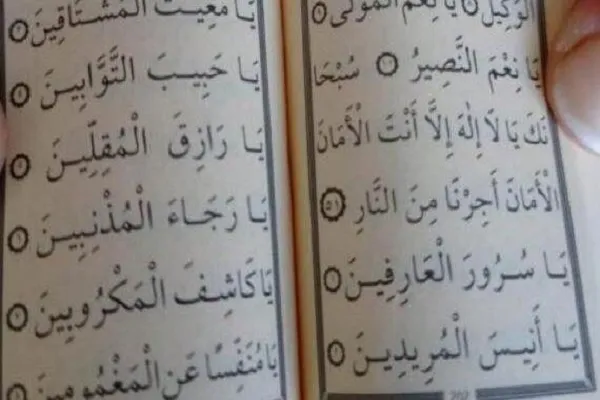 الْوَكِيلُ ۝ يَا نِعْمَ الْمَوْلَى ۝
يَا نِعْمَ النَّصِيرُ ۝ سُبْحَا
نَكَ يَا لَا إِلٰهَ إِلَّا أَنْتَ الْأَمَانَ
الْأَمَانَ أَجِرْنَا مِنَ النَّارِ ۝٥١
يَا سُرُورَ الْعَارِفِينَ ۝
يَا أَنِيسَ الْمُرِيدِينَ ۝
202
يَا مُغِيثَ الْمُشْتَاقِينَ ۝
يَا حَبِيبَ التَّوَّابِينَ ۝
يَا رَازِقَ الْمُقِلِّينَ ۝
يَا رَجَاءَ الْمُذْنِبِينَ ۝
يَا كَاشِفَ الْمَكْرُوبِينَ ۝
يَا مُنَفِّسًا عَنِ الْمَغْمُومِينَ ۝